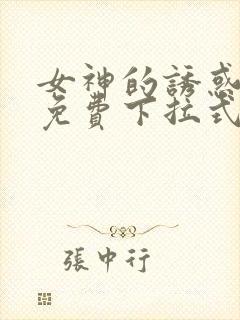 女神的誘惑
免費下拉式
張中行